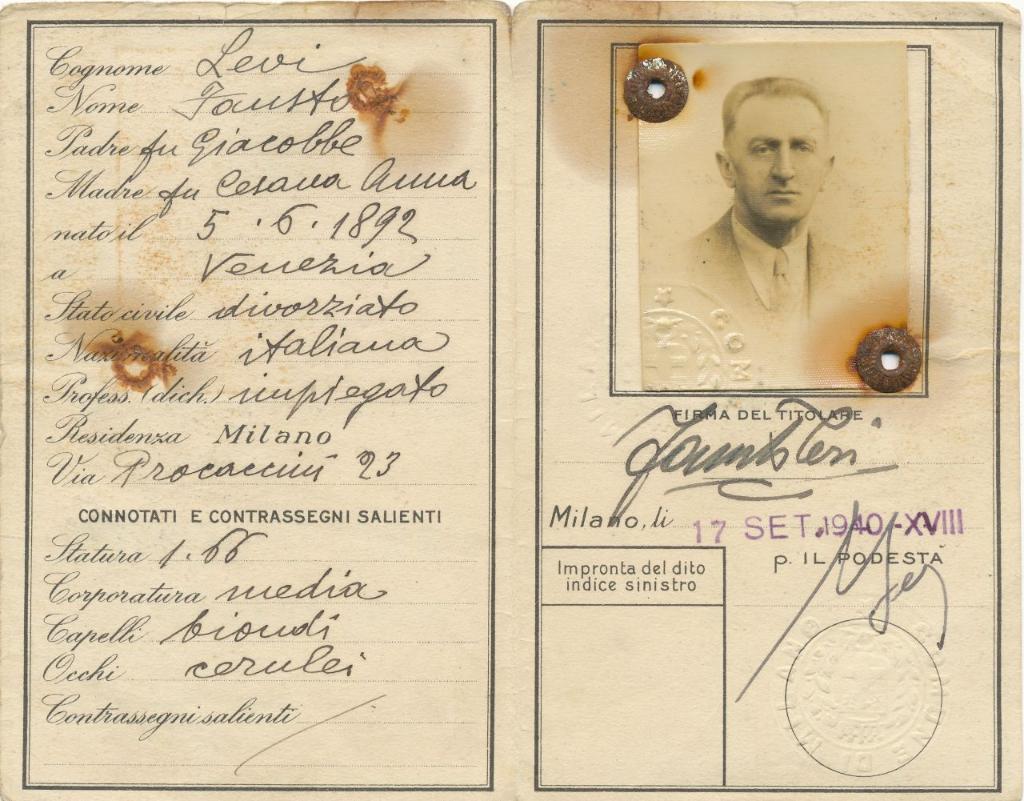 Cognome Levi
Nome Fausto
Padre fu Giacobbe
Madre fu Cesana Anna
nato il 5.6.1892
a Venezia
Stato civile divorziato
Nazionalità italiana
Profess. (dich.) impiegato
Residenza Milano
Via Procaccini 23
CONNOTATI E CONTRASSEGNI SALIENTI
Statura 1.66
Corporatura media
Capelli biondi
Occhi cerulei
Contrassegni salienti
COM
FIRMA DEL TITOLARE
Fausto Levi
Milano, li 17 SET. 1940-XVIII
p. IL PODESTÀ
Impronta del dito
indice sinistro
COMUNE DI MILANO